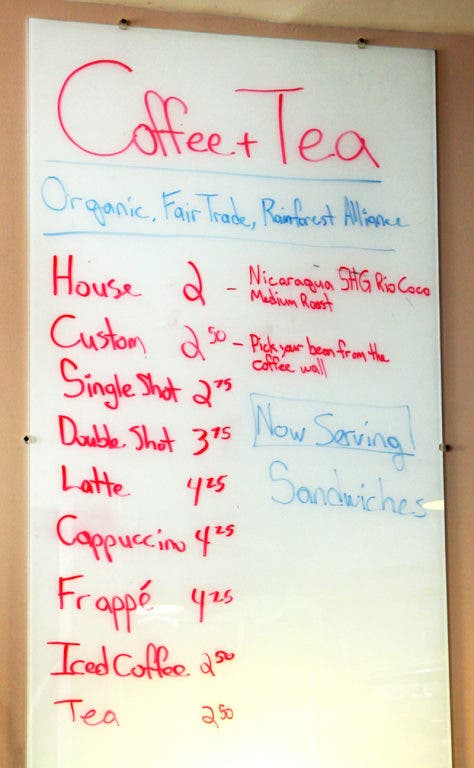 Coffee + Tea
Organic, Fair Trade, Rainforest Alliance
House 2 - Nicaragua SHG Rio Coco
Medium Roast
Custom 2 50 - Pick your bean from the
coffee wall
Single Shot 2 75
Double Shot 3 75
Now Serving!
Latte 4 25
Sandwiches
Cappuccino 4 25
Frappé 4 25
Iced Coffee 2 50
Tea 2 50